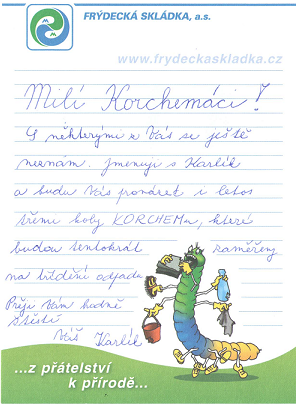 FRÝDECKÁ SKLÁDKA, a.s.
www.frydeckaskladka.cz
Milí Korchemáci!
S některými z Vás se ještě
neznám. Jmenuji s Karlík
a budu Vás provázet i letos
třemi koly KORCHEMu, které
budou tentokrát zaměřeny
na třídění odpadu
Přeji Vám hodně
štěstí
Váš Karlík
...z přátelství
k přírodě...